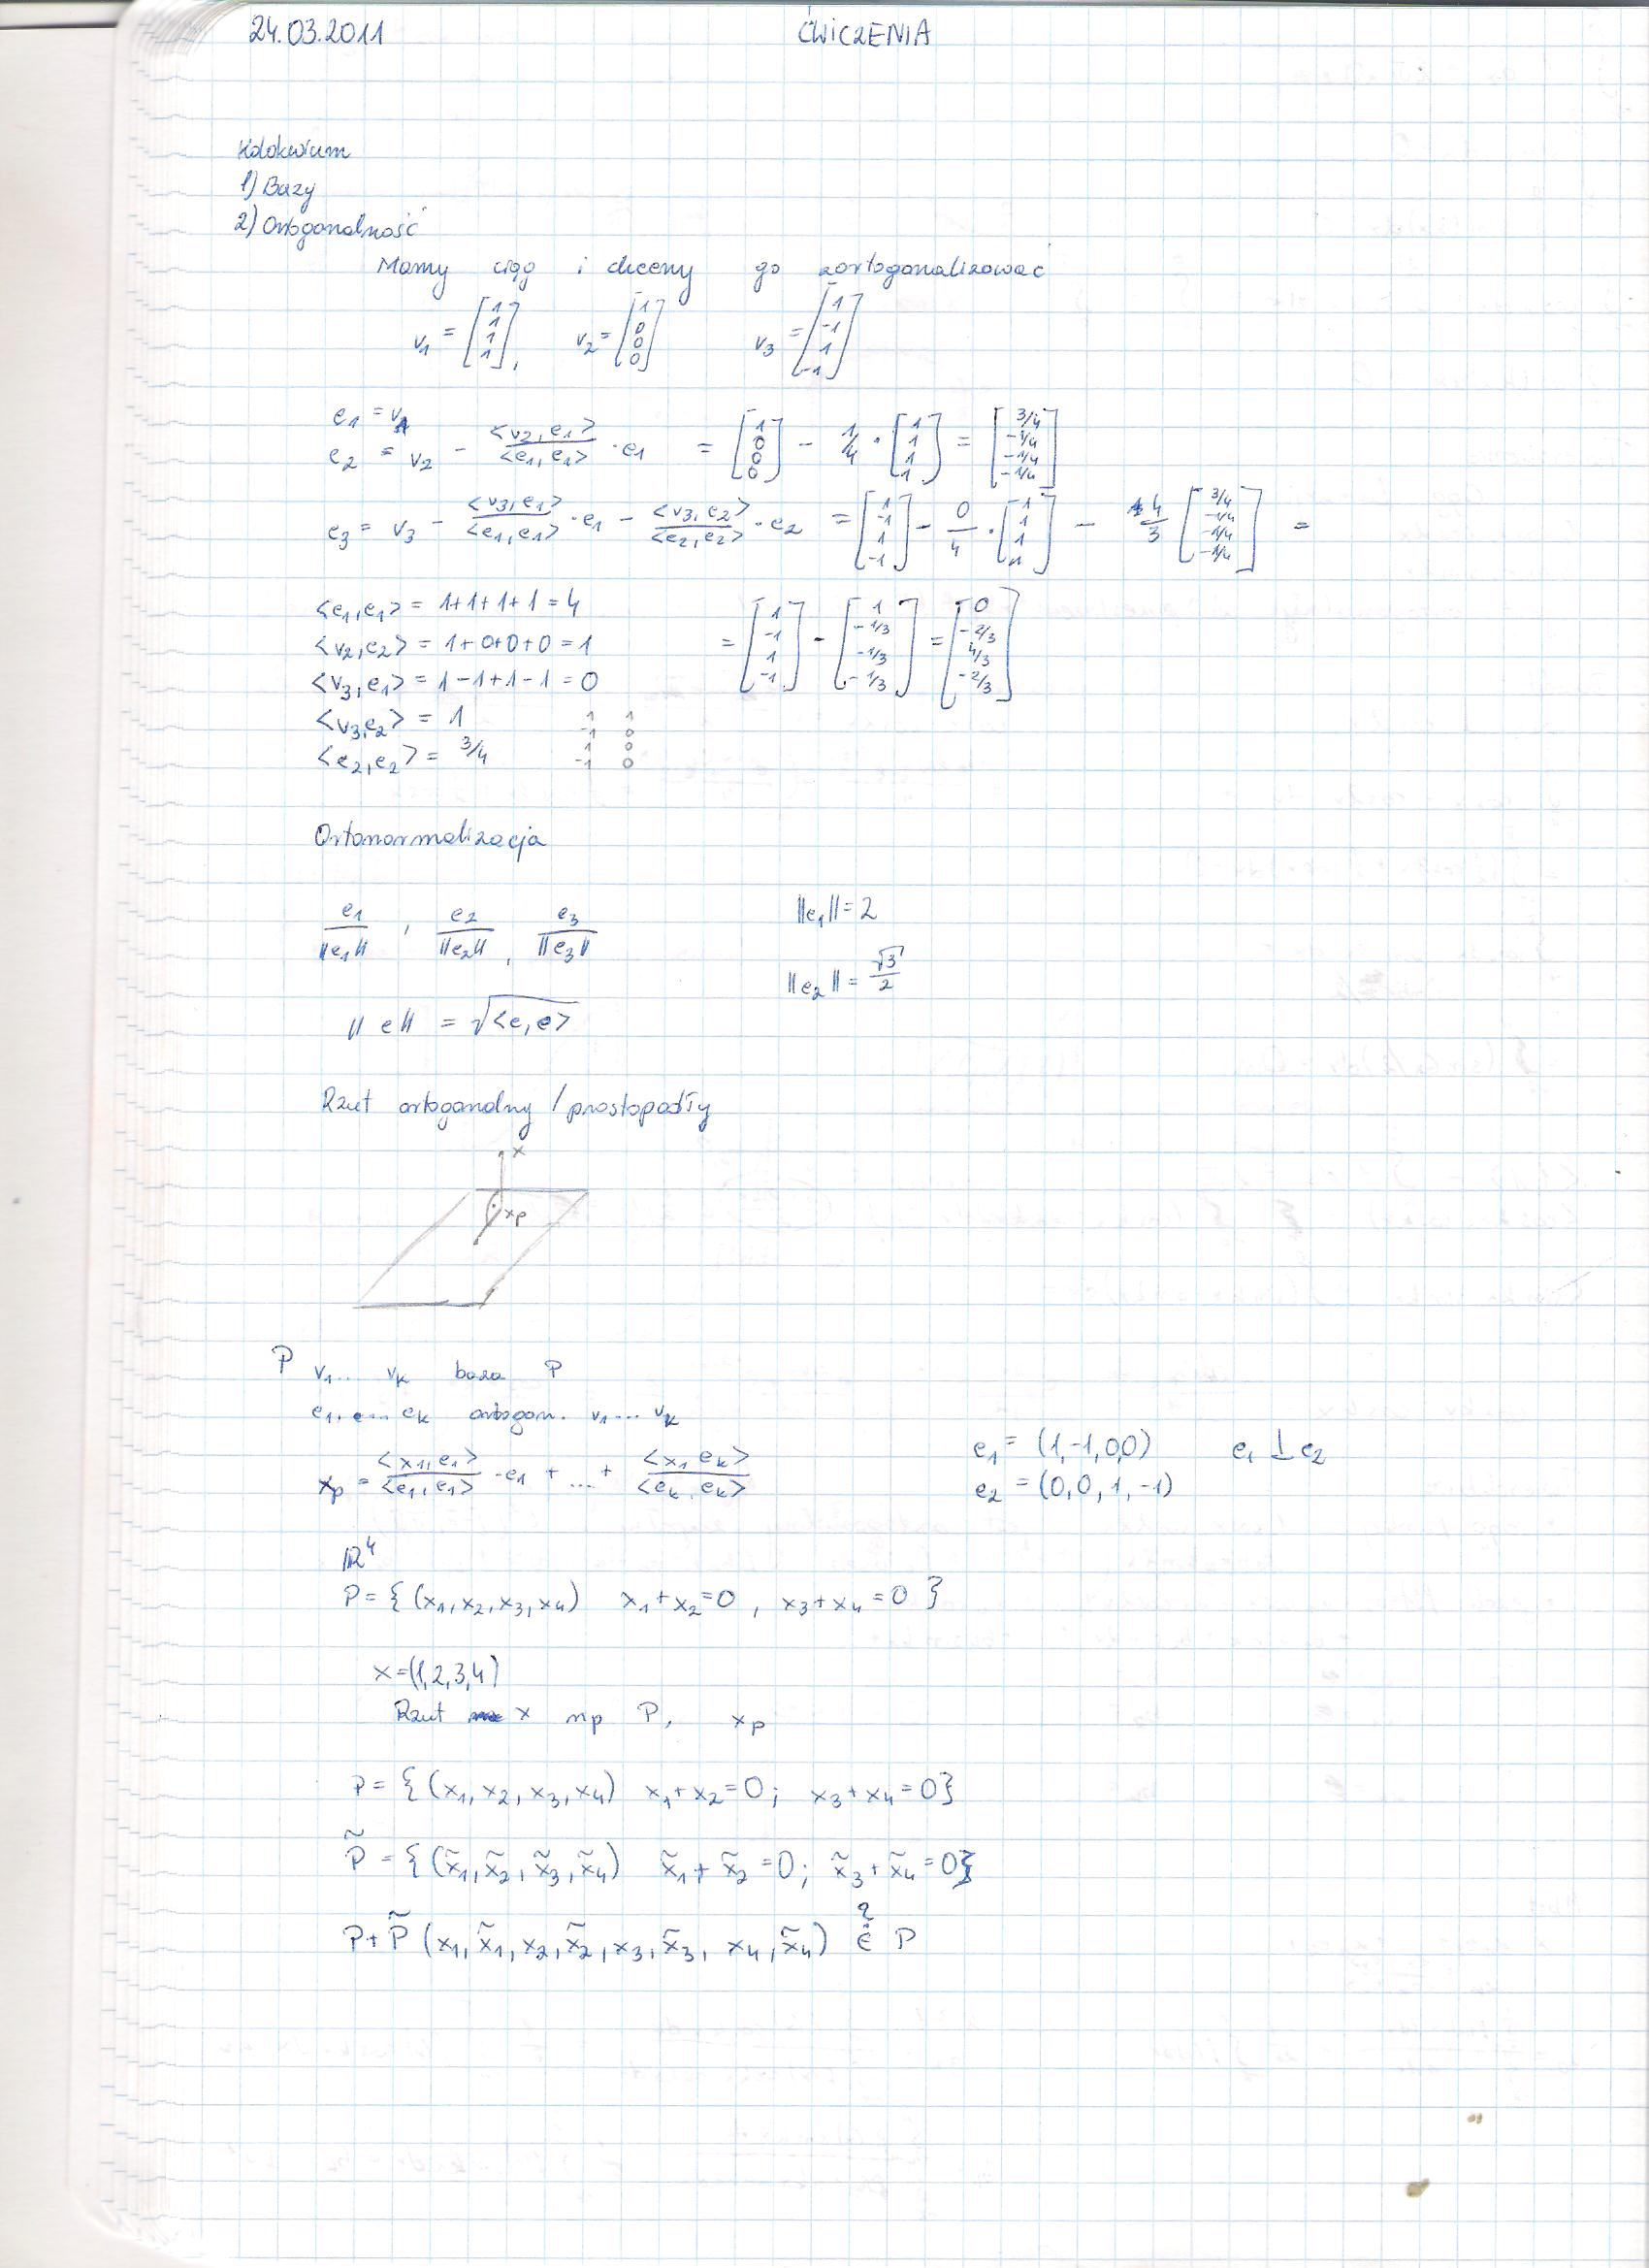 24.03.2011 ĆWICZENIA
Kolokwium
1) Bazy
2) Ortogonalność
Mamy ciąg i chcemy go zortogonalizować
v₁ = [1 1 1 1], v₂ = [1 0 0 0] v₃ = [1 -1 1 -1]
e₁ = v₁
e₂ = v₂ - <v₂,e₁>/<e₁,e₁> · e₁ = [1 0 0 0] - 1/4 · [1 1 1 1] = [3/4 -1/4 -1/4 -1/4]
e₃ = v₃ - <v₃,e₁>/<e₁,e₁> · e₁ - <v₃,e₂>/<e₂,e₂> · e₂ = [1 -1 1 -1] - 0/4 · [1 1 1 1] - 4/3 [3/4 -1/4 -1/4 -1/4] =
= [1 -1 1 -1] - [1 -1/3 -1/3 -1/3] = [0 -2/3 4/3 -2/3]
<e₁,e₁> = 1+1+1+1 = 4
<v₂,e₂> = 1+0+0+0 = 1
<v₃,e₁> = 1-1+1-1 = 0
<v₃,e₂> = 1
<e₂,e₂> = 3/4
1 1
-1 0
1 0
-1 0
Ortonormalizacja
e₁/||e₁||, e₂/||e₂||, e₃/||e₃|| ||e₁|| = 2
||e₂|| = √3/2
||e|| = √<e,e>
Rzut ortogonalny / prostopadły
x
xp
P v₁... vₖ baza P
e₁, ... eₖ ortogon. v₁... vₖ
xp = <x,e₁>/<e₁,e₁> · e₁ + ... + <x,eₖ>/<eₖ,eₖ>
e₁ = (1,-1,0,0) e₁ ⊥ e₂
e₂ = (0,0,1,-1)
ℝ⁴
P = { (x₁,x₂,x₃,x₄) x₁+x₂=0 , x₃+x₄=0 }
x=(1,2,3,4)
Rzut x np P, xp
P = { (x₁,x₂,x₃,x₄) x₁+x₂=0; x₃+x₄=0}
P̃ = { (x̃₁,x̃₂,x̃₃,x̃₄) x̃₁+x̃₂=0; x̃₃+x̃₄=0}
?
P+P̃ (x₁,x̃₁,x₂,x̃₂,x₃,x̃₃, x₄,x̃₄) ∈ P